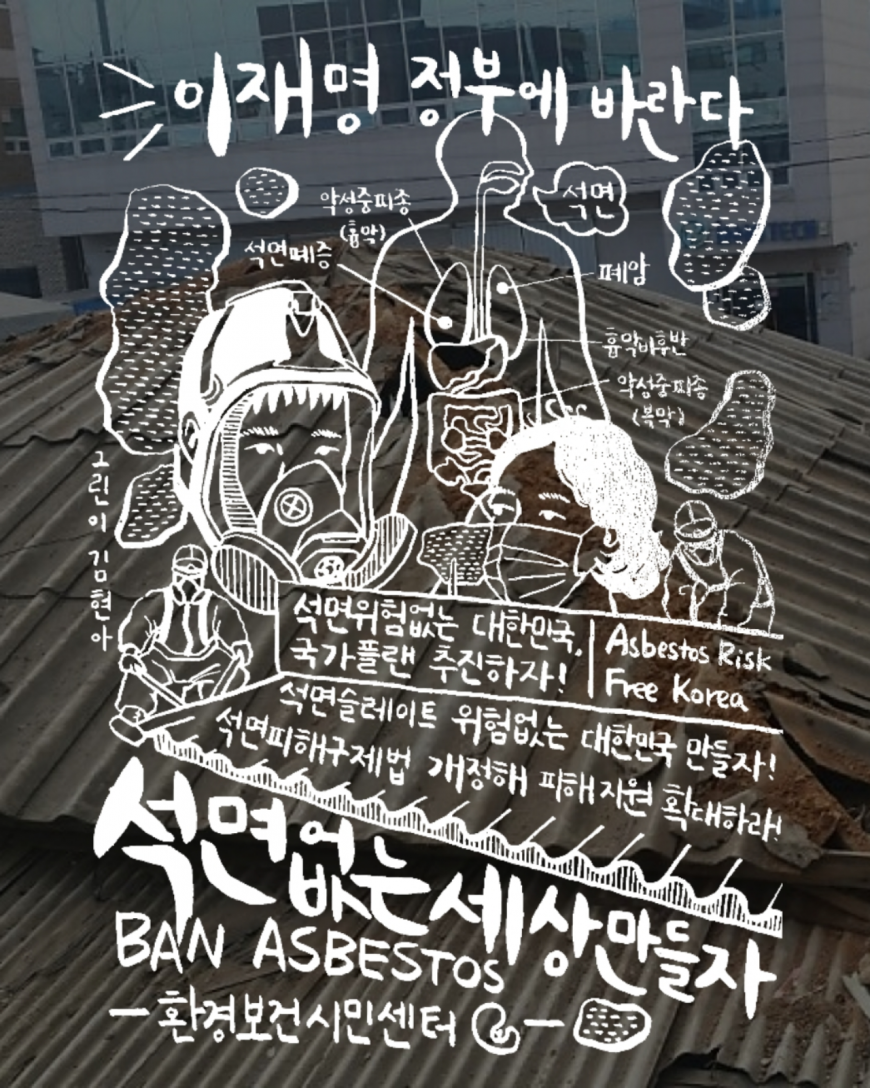 이재명 정부에 바란다
악성중피종
(흉막)
석면
석면폐증
폐암
흉막비후반
악성중피종
(복막)
그린이 김현아
석면위험없는 대한민국,
국가플랜 추진하자!
Asbestos Risk
Free Korea
석면슬레이트 위험없는 대한민국 만들자!
석면피해구제법 개정해 피해지원 확대하라!
석면없는세상만들자
BAN ASBESTOS
환경보건시민센터